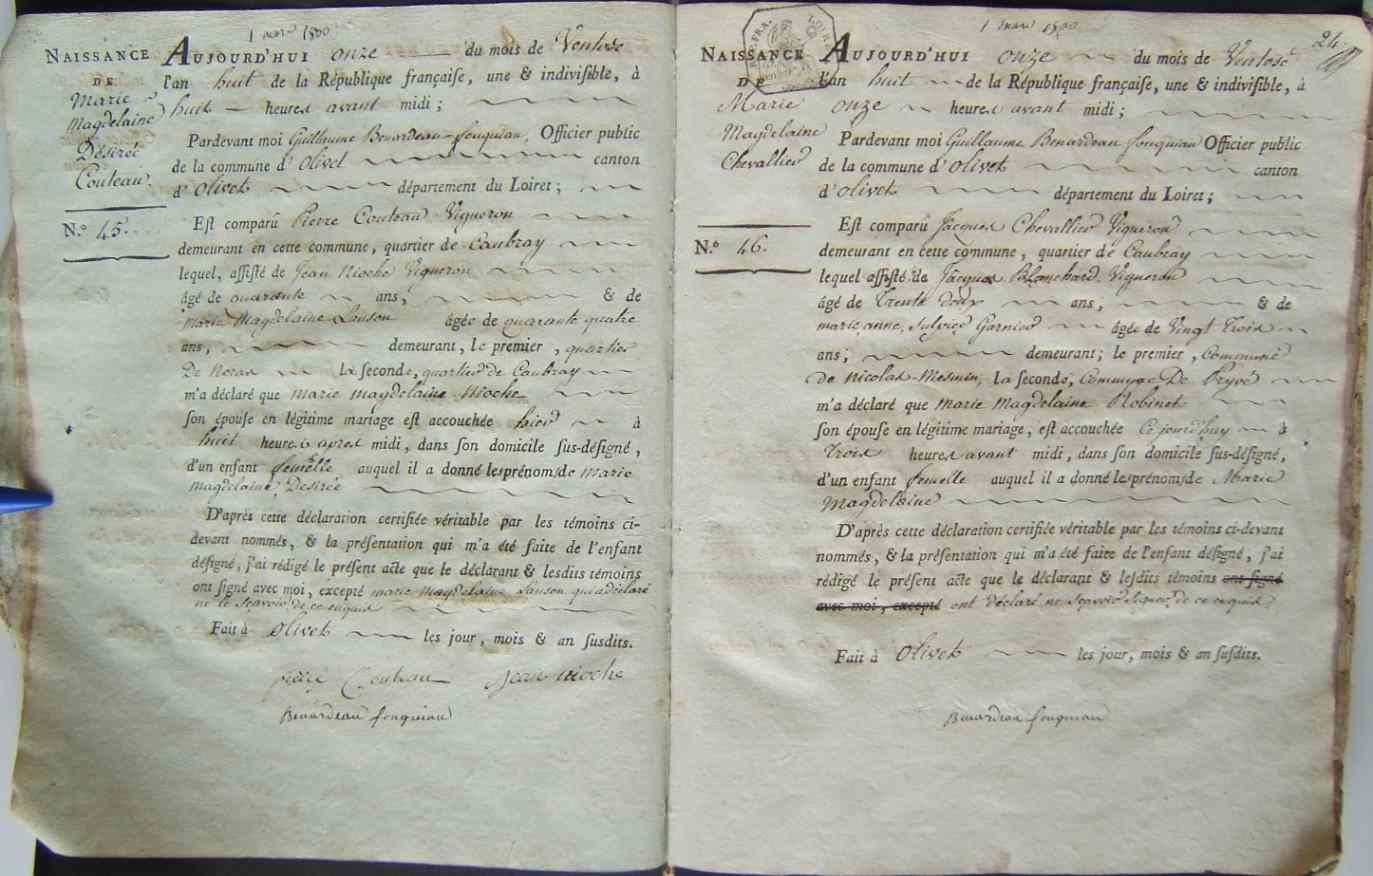 1 mars 1800
NAISSANCE
DE
Marie
Magdelaine
Désirée
Couteau.
N.º 45.
AUJOURD'HUI onze du mois de Ventose
l'an huit de la République françaiſe, une & indiviſible, à
huit heures avant midi ;
Pardevant moi Guillaume Benardeau-fouquiau, Officier public
de la commune d'Olivet canton
d'Olivet département du Loiret ;
Eſt comparû Pierre Couteau Vigneron
demeurant en cette commune, quartier de Caubray
lequel, aſſiſté de Jean Mioche Vigneron
âgé de quarante ans, & de
marie Magdelaine Lanson âgée de quarante quatre
ans, demeurant, le premier, quartier
De la ſeconde, quartier de Caubray
m'a déclaré que marie magdelaine Mioche
ſon épouſe en légitime mariage eſt accouchée hier à
huit heures après midi, dans ſon domicile ſus-déſigné,
d'un enfant femelle auquel il a donné les prénoms de Marie
Magdelaine, Désirée
D'après cette déclaration certifiée véritable par les témoins ci-
devant nommés, & la préſentation qui m'a été faite de l'enfant
déſigné, j'ai rédigé le préſent acte que le déclarant & leſdits témoins
ont ſigné avec moi, excepté marie Magdelaine Lanson qui a déclaré
ne le sçavoir de ce enquis
Fait à Olivet les jour, mois & an ſuſdits.
pierre Couteau Jean mioche
Benardeau fouquiau
1 mars 1800
24.
NAISSANCE
DE
Marie
Magdelaine
Chevallier
N.º 46.
AUJOURD'HUI onze du mois de Ventose
l'an huit de la République françaiſe, une & indiviſible, à
onze heures avant midi ;
Pardevant moi Guillaume Benardeau fouquiau Officier public
de la commune d'Olivet canton
d'Olivet département du Loiret ;
Eſt comparû Jacques Chevallier Vigneron
demeurant en cette commune, quartier de Caubray
lequel aſſiſté de Jacques Blanchard Vigneron
âgé de Trente Deux ans, & de
marie anne, Sulpice Garnier âgée de Vingt Trois
ans ; demeurant ; le premier, Commune
de Nicolas-Mesmin, la ſeconde, Commune De Pryvé
m'a déclaré que Marie Magdelaine Robinet
ſon épouſe en légitime mariage, eſt accouchée Ce jourd'huy à
Trois heures avant midi, dans ſon domicile ſus-déſigné,
d'un enfant femelle auquel il a donné les prénoms de Marie
Magdelaine
D'après cette déclaration certifiée véritable par les témoins ci-devant
nommés, & la préſentation qui m'a été faite de l'enfant déſigné, j'ai
rédigé le préſent acte que le déclarant & leſdits témoins ont ſigné
avec moi, excepté ont déclaré ne sçavoir signer de ce enquis
Fait à Olivet les jour, mois & an ſuſdits.
Benardeau fouquiau